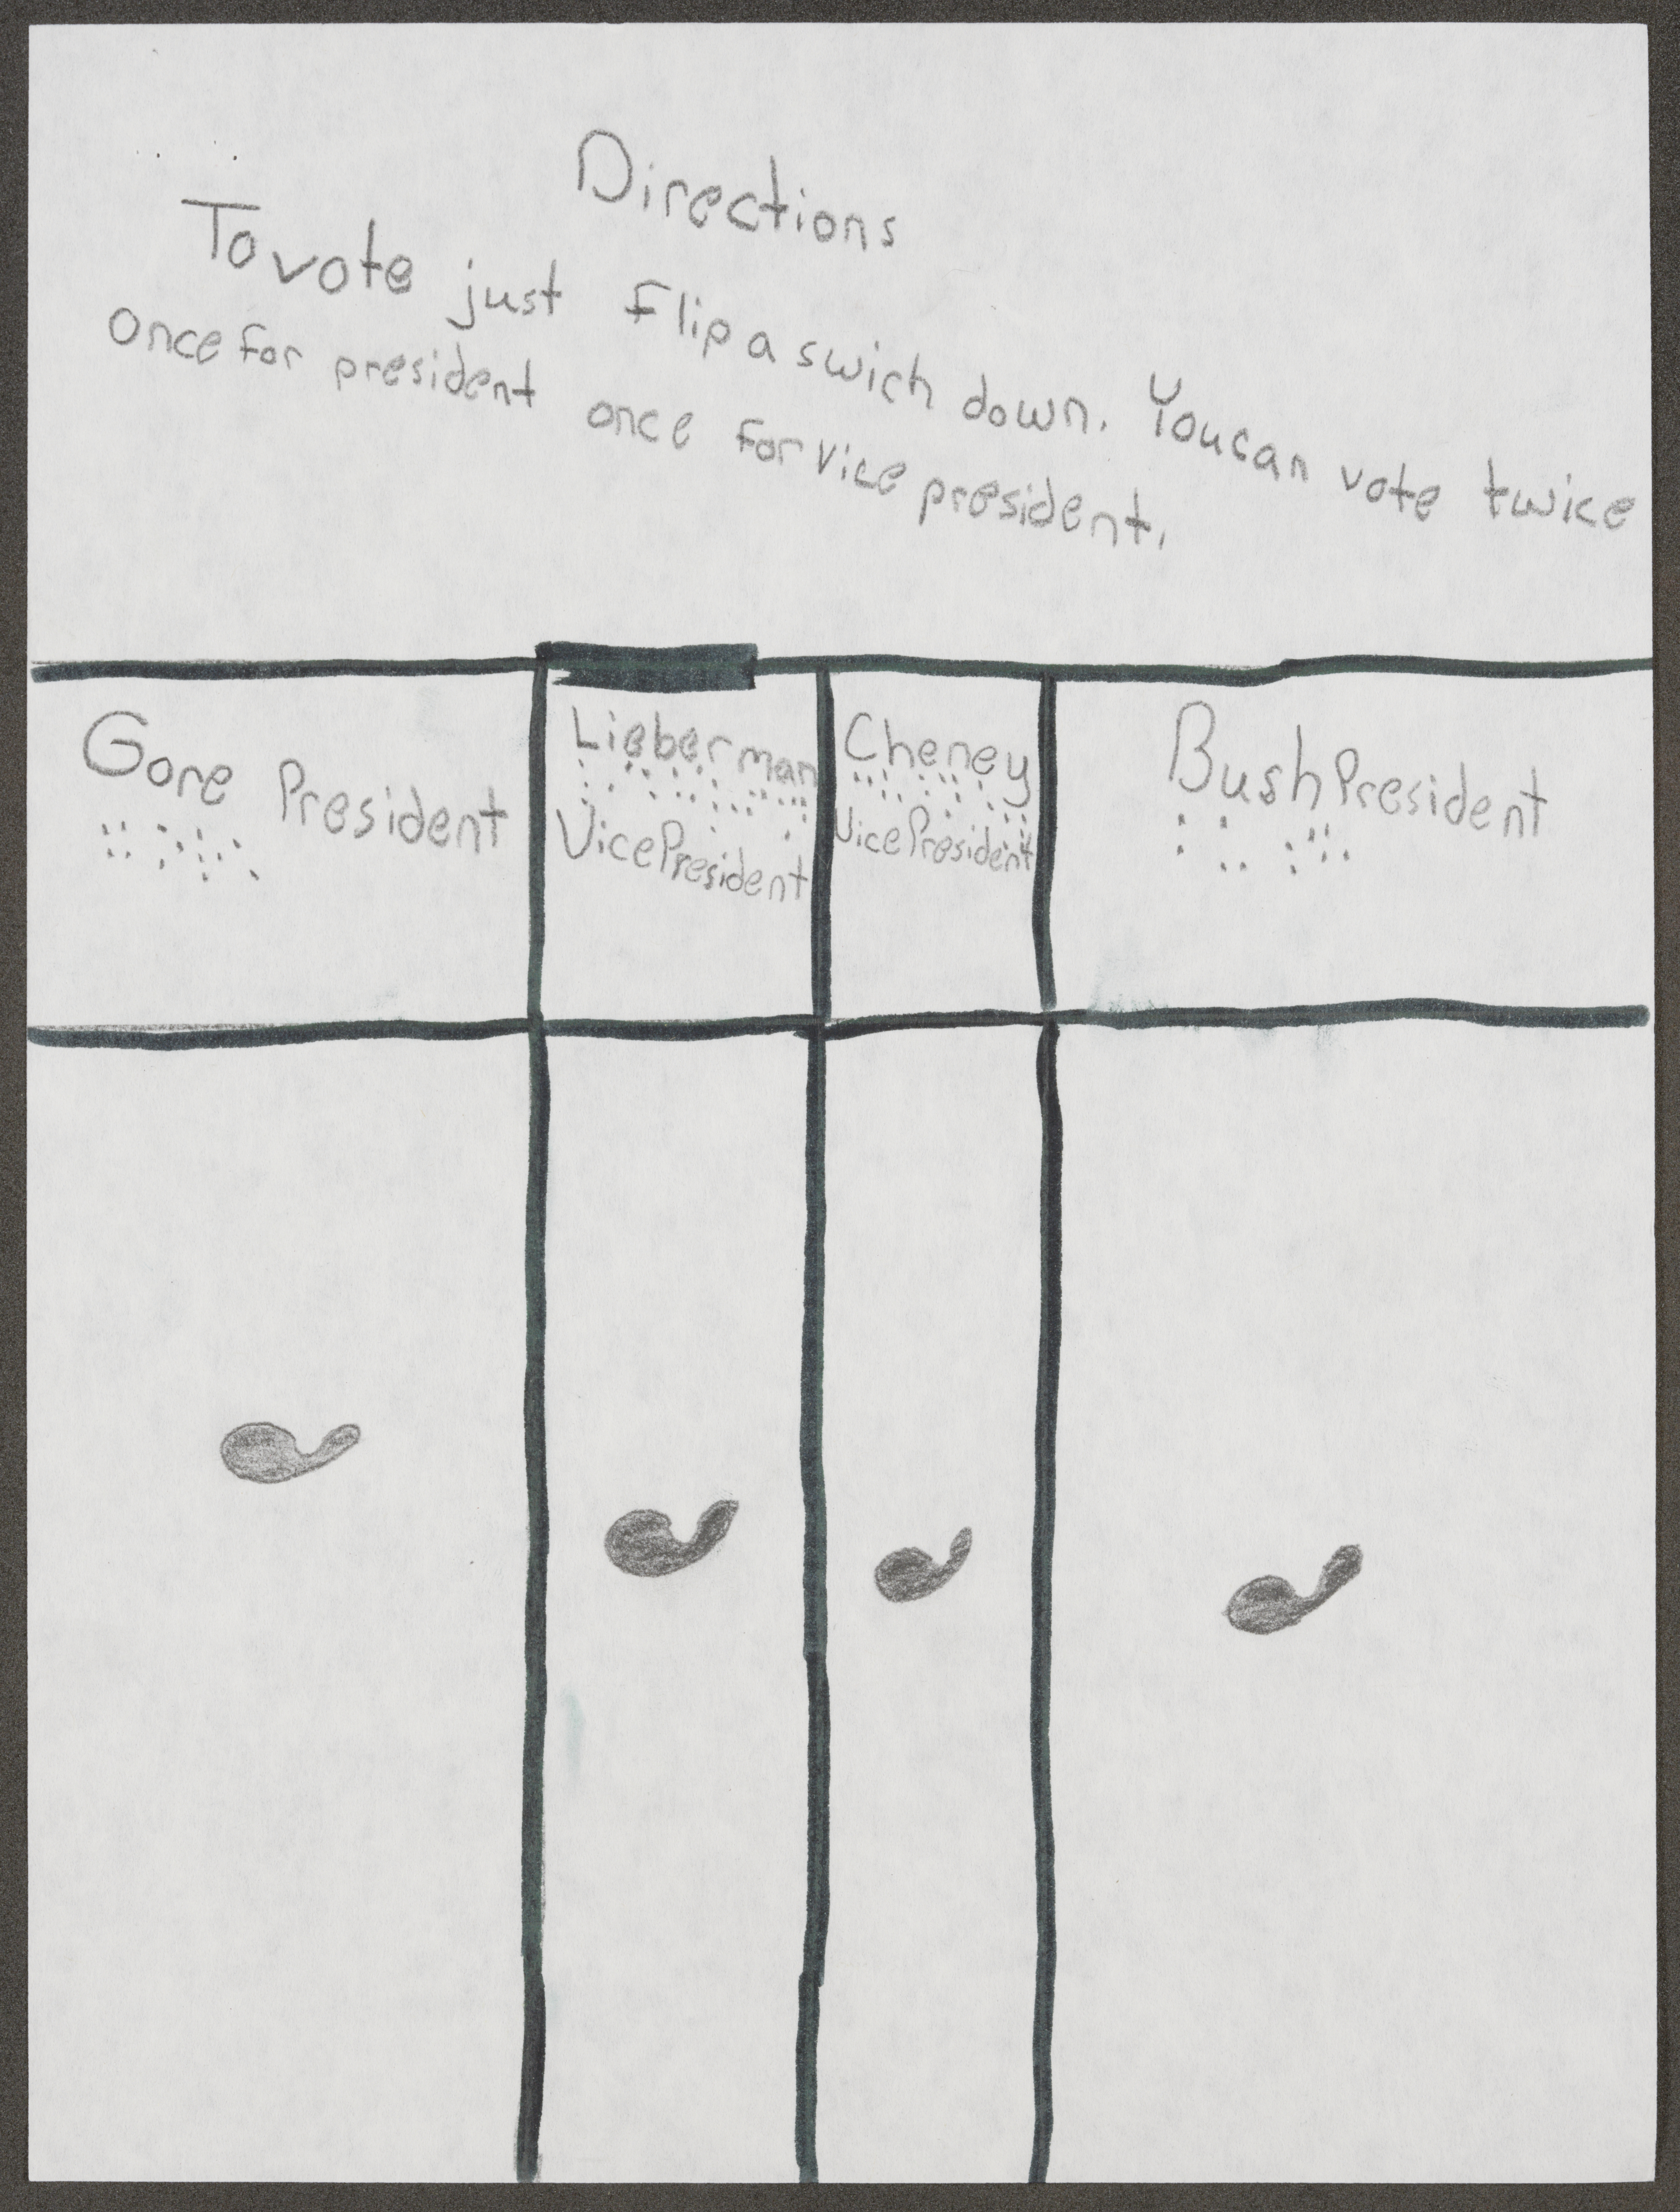 Directions
To vote just flip a swich down. You can vote twice
once for president once for vice president.
Gore President
Lieberman
Vice President
Cheney
Vice President
Bush President